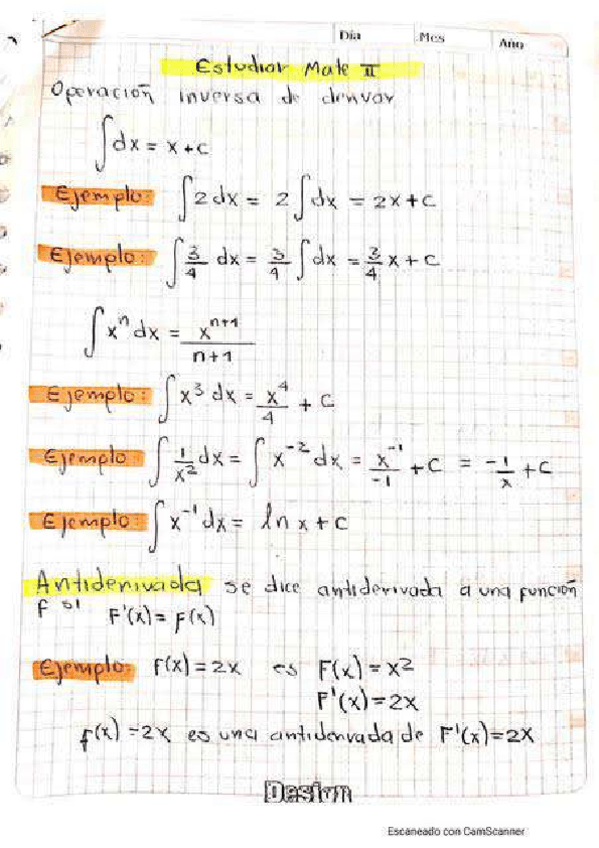 Día Mes Año
Estudiar Mate II
Operación inversa de derivar
∫dx = x + c
Ejemplo: ∫2dx = 2∫dx = 2x + c
Ejemplo: ∫3/4 dx = 3/4 ∫dx = 3/4 x + c
∫xⁿdx = xⁿ⁺¹/n+1
Ejemplo: ∫x³dx = x⁴/4 + c
Ejemplo ∫1/x² dx = ∫x⁻²dx = x⁻¹/-1 + c = -1/x + c
Ejemplo: ∫x⁻¹dx = ln x + c
Antiderivada se dice antiderivada a una función
f si F'(x) = f(x)
Ejemplo: f(x) = 2x es F(x) = x²
F'(x) = 2x
f(x) = 2x es una antiderivada de F'(x) = 2x
Design
Escaneado con CamScanner